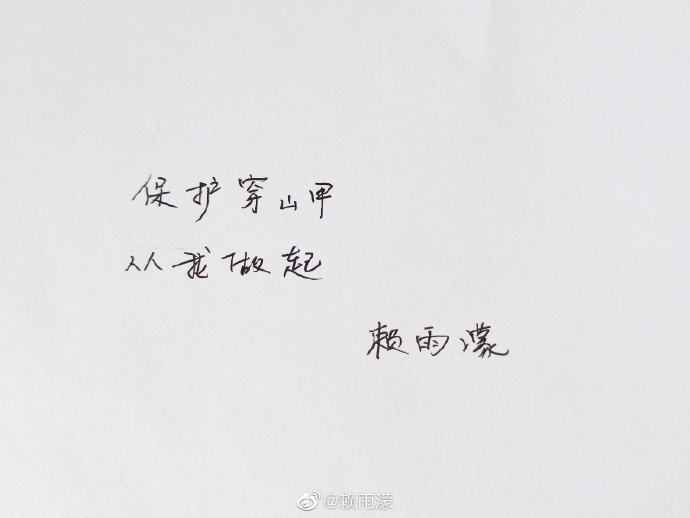 保护穿山甲
从我做起
赖雨濛
@赖雨濛